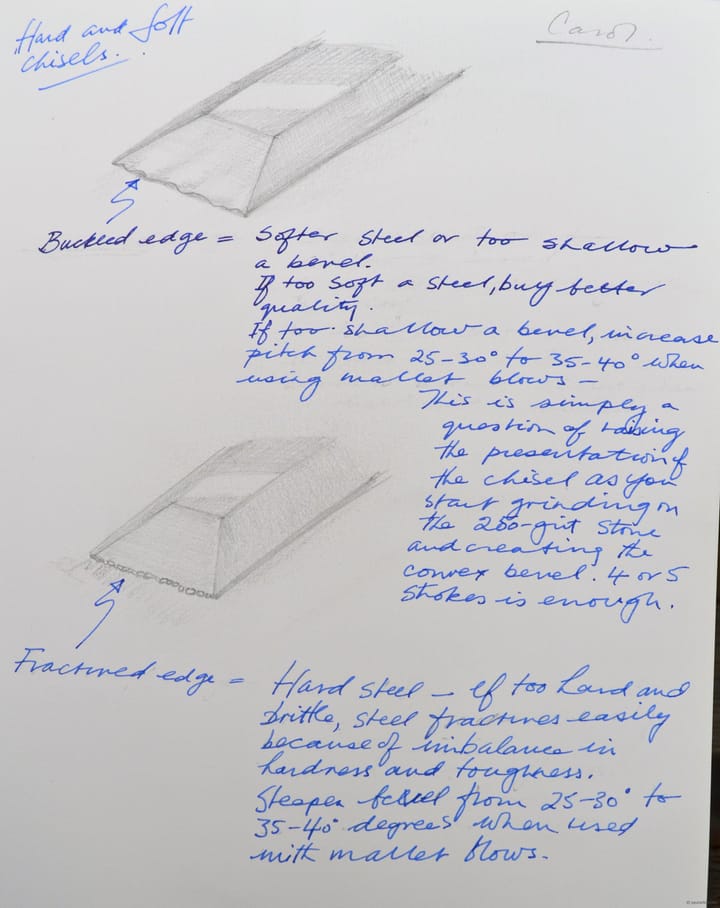 Hard and Soft
Chisels.
Carol.
Buckled edge = Softer steel or too shallow
a bevel.
If too soft a steel, buy better
quality.
If too shallow a bevel, increase
pitch from 25-30° to 35-40° when
using mallet blows –
This is simply a
question of raising
the presentation of
the chisel as you
start grinding on
the 250-grit stone
and creating the
convex bevel. 4 or 5
strokes is enough.
Fractured edge = Hard steel – If too hard and
brittle, steel fractures easily
because of imbalance in
hardness and toughness.
Steepen bevel from 25-30° to
35-40° degrees when used
with mallet blows.